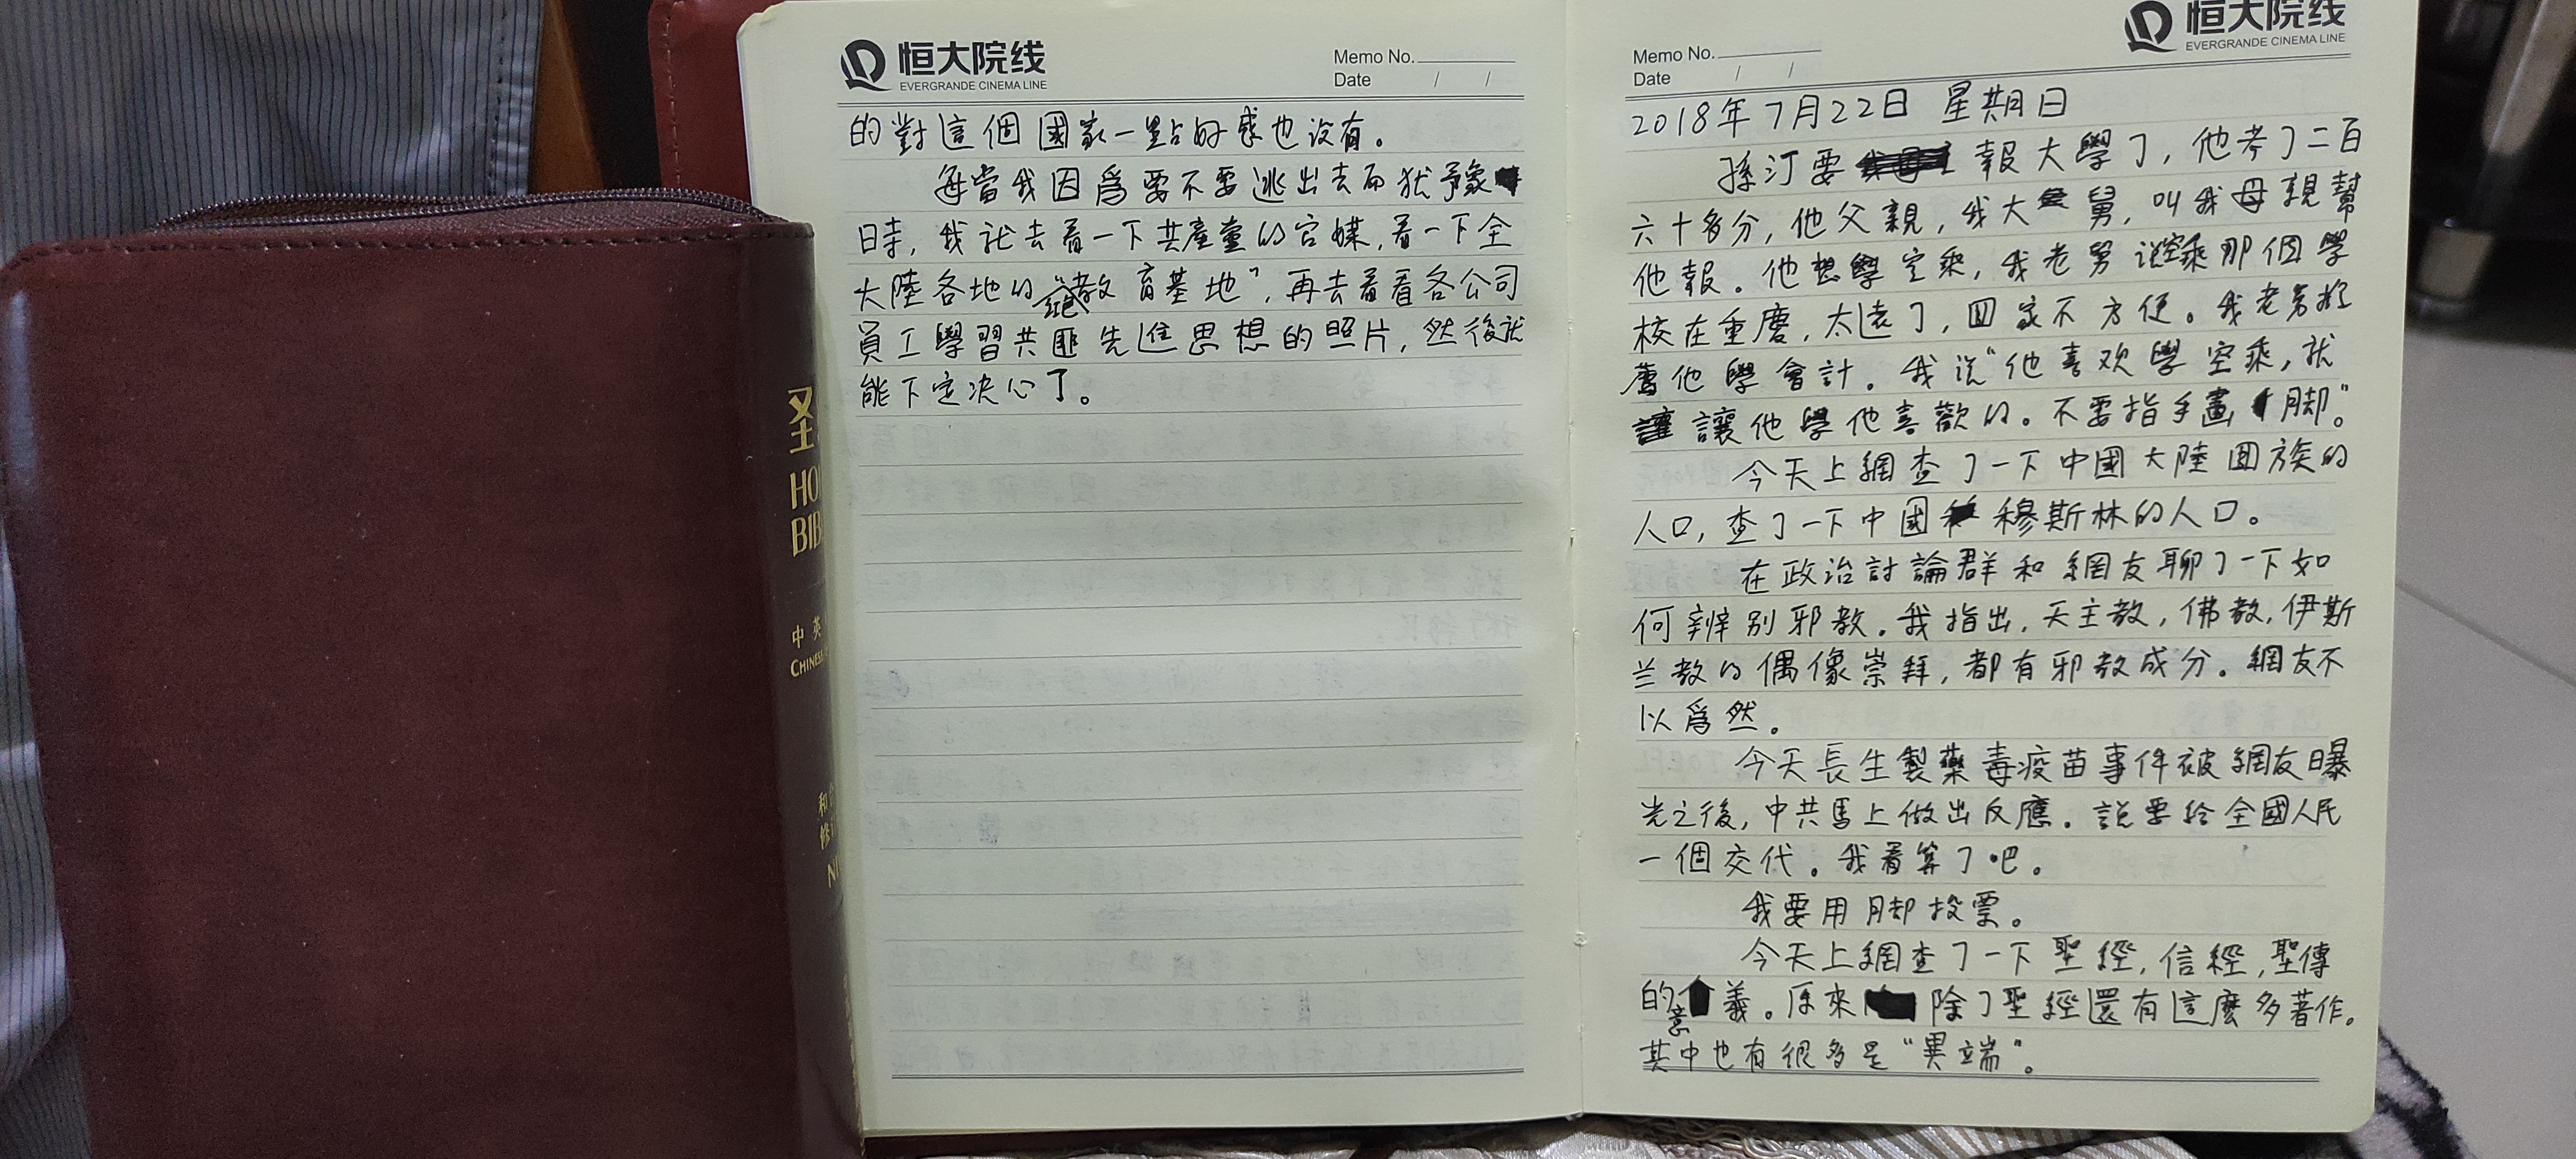 圣
HO
BIB
中英
CHINES
和
修
NI
恒大院线
EVERGRANDE CINEMA LINE
Memo No.
Date / /
的對這個國家一點好感也没有。
每當我因爲要不要逃出去而犹豫
時，我就去看一下共產黨的官媒，看一下全
大陸各地的“教育基地”，再去看看各公司
員工學習共匪先進思想的照片，然後就
能下定决心了。
恒大院线
EVERGRANDE CINEMA LINE
Memo No.
Date / /
2018年7月22日 星期日
孫汀要報大學了，他考了二百
六十多分，他父親，我大舅，叫我母親幫
他報。他想學空乘，我老舅说空乘那個學
校在重慶，太遠了，回家不方便。我老舅推
薦他學會計。我说“他喜欢學空乘，就
讓他學他喜歡的。不要指手畫脚”。
今天上網查了一下中國大陸回族的
人口，查了一下中國穆斯林的人口。
在政治討論群和網友聊了一下如
何辨别邪教。我指出，天主教，佛教，伊斯
兰教的偶像崇拜，都有邪教成分。網友不
以爲然。
今天長生製藥毒疫苗事件被網友曝
光之後，中共馬上做出反應。説要给全國人民
一個交代。我看算了吧。
我要用脚投票。
今天上網查了一下聖經，信經，聖傳
的意義。原來除了聖經還有這麽多著作。
其中也有很多是“異端”。